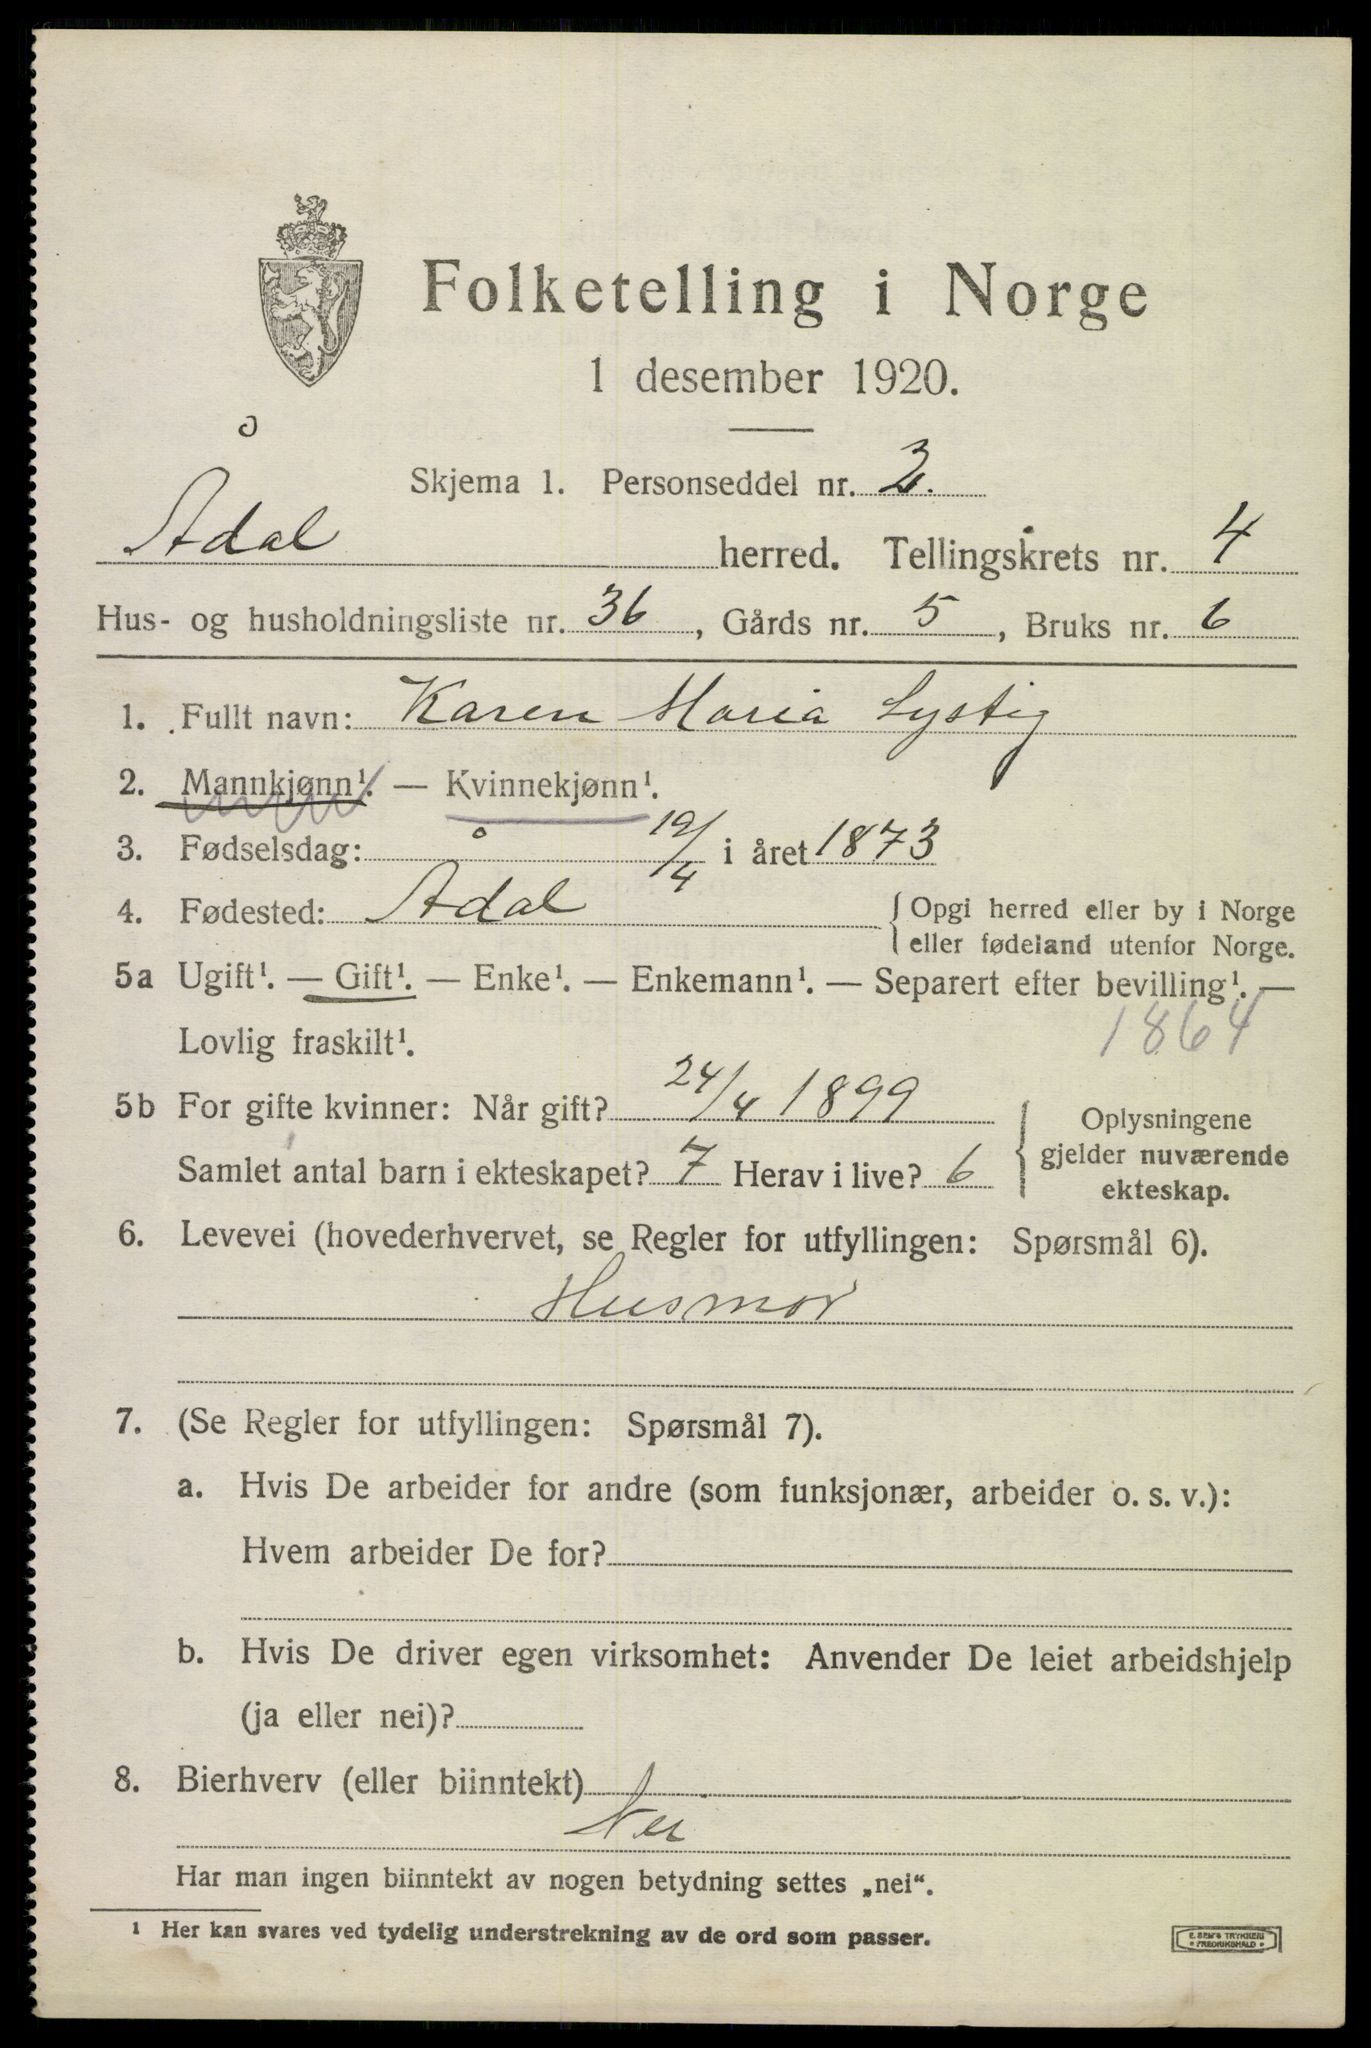 Folketelling i Norge
1 desember 1920.
Skjema 1. Personseddel nr. 2.
Ådal herred. Tellingskrets nr. 4
Hus- og husholdningsliste nr. 36, Gårds nr. 5, Bruks nr. 6
1. Fullt navn: Karen Maria Lystig
2. Mannkjønn¹. — Kvinnekjønn¹.
3. Fødselsdag: 19/4 i året 1873
4. Fødested: Ådal {Opgi herred eller by i Norge
eller fødeland utenfor Norge.
5a Ugift¹. — Gift¹. — Enke¹. — Enkemann¹. — Separert efter bevilling¹. —
Lovlig fraskilt¹. 1864
5b For gifte kvinner: Når gift? 24/4 1899
Samlet antal barn i ekteskapet? 7 Herav i live? 6
Oplysningene
gjelder nuværende
ekteskap.
6. Levevei (hovederhvervet, se Regler for utfyllingen: Spørsmål 6).
Husmor
7. (Se Regler for utfyllingen: Spørsmål 7).
a. Hvis De arbeider for andre (som funksjonær, arbeider o. s. v.):
Hvem arbeider De for?
b. Hvis De driver egen virksomhet: Anvender De leiet arbeidshjelp
(ja eller nei)?
8. Bierhverv (eller biinntekt)
Nei
Har man ingen biinntekt av nogen betydning settes „nei“.
¹ Her kan svares ved tydelig understrekning av de ord som passer.
E. SEM'S TRYKKERI
• FREDRIKSHALD •